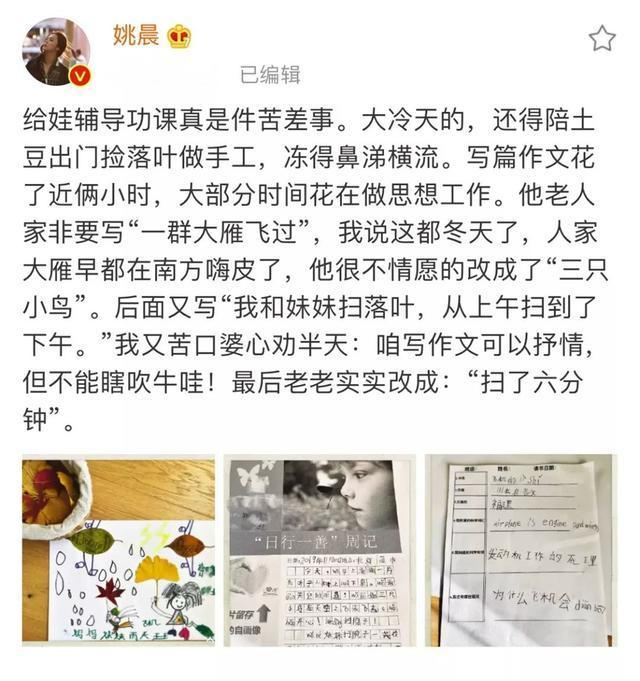 姚晨
已编辑
给娃辅导功课真是件苦差事。大冷天的，还得陪土
豆出门捡落叶做手工，冻得鼻涕横流。写篇作文花
了近俩小时，大部分时间花在做思想工作。他老人
家非要写“一群大雁飞过”，我说这都冬天了，人家
大雁早都在南方嗨皮了，他很不情愿的改成了“三只
小鸟”。后面又写“我和妹妹扫落叶，从上午扫到了
下午。”我又苦口婆心劝半天：咱写作文可以抒情，
但不能瞎吹牛哇！最后老老实实改成：“扫了六分
钟”。
妈妈妹妹雨天
飞机
“日行一善”周记
片留存
的自画像
班级： 姓名： 读书日期：
airplane is engine
发动机工作的原理
为什么飞机会